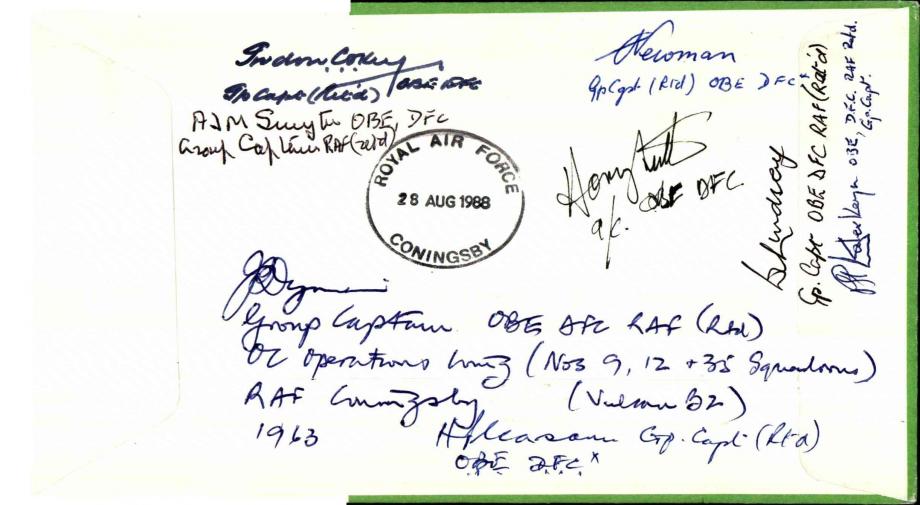 OBE AFC
Gp Capt (Ret'd)
AJM Smyth OBE, DFC
Group Captain RAF (retd)
Newman
Gp Capt (Rtd) OBE DFC*
ROYAL AIR FORCE
28 AUG 1988
CONINGSBY
Harry
a/c. OBE DFC
Lindsay
Gp. Capt OBE DFC RAF (Ret'd)
OBE, DFC. RAF Retd.
Gp. Capt.
Group Captain OBE AFC RAF (Rtd)
OC Operations Wing (Nos 9, 12 + 35 Squadrons)
RAF Coningsby (Vulcan B2)
1963
Gp. Capt (Rtd)
OBE DFC*